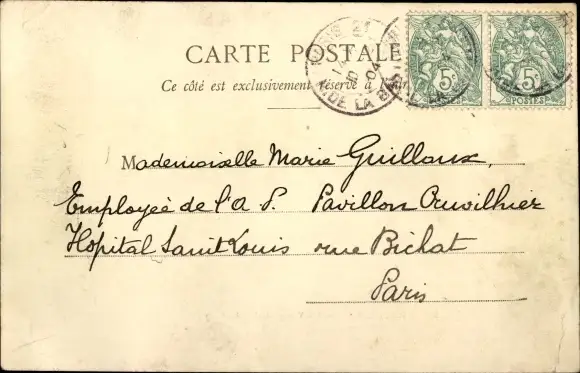 CARTE POSTALE
Ce côté est exclusivement réservé à
5c 5c
POSTES POSTES
DE LA BAS
10 04
Mademoiselle Marie Guilloux,
Employée de l'A P. Pavillon Cruvilhier
Hôpital Saint Louis rue Bichat
Paris